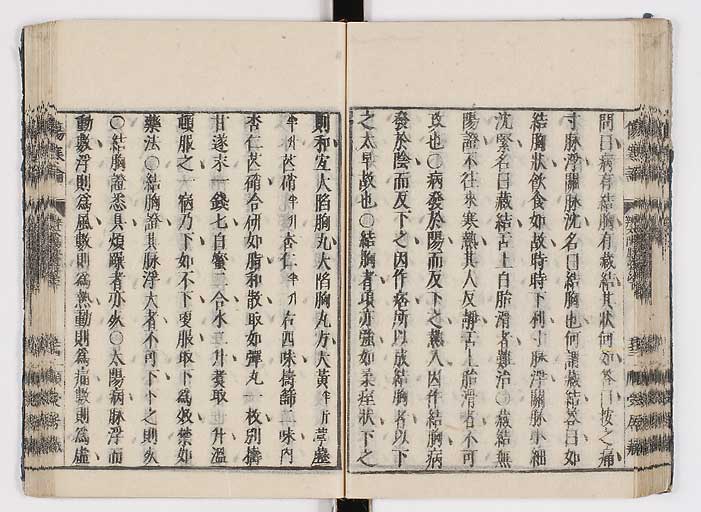 問曰病有結胸有藏結其狀何如答曰按之痛
寸脉浮關脉沈名曰結胸也何謂藏結答曰如
結胸狀飲食如故時時下利寸脉浮關脉小細
沈緊名曰藏結舌上白胎滑者難治〇藏結無
陽證不往來寒熱其人反靜舌上胎滑者不可
攻也〇病發於陽而反下之熱入因作結胸病
發於陰而反下之因作痞所以成結胸者以下
之太早故也〇結胸者項亦強如柔痓狀下之
則和宜大陷胸丸大陷胸丸方大黃半斤葶藶
半升芒硝半升杏仁半升右四味擣篩二味內
杏仁芒硝合研如脂和散取如彈丸一枚別擣
甘遂末一錢七白蜜二合水二升煑取一升溫
頓服之一宿乃下如不下更服取下爲效禁如
藥法〇結胸證其脉浮大者不可下下之則死
〇結胸證悉具煩躁者亦死〇太陽病脉浮而
動數浮則爲風數則爲熱動則爲痛數則爲虛
傷寒論